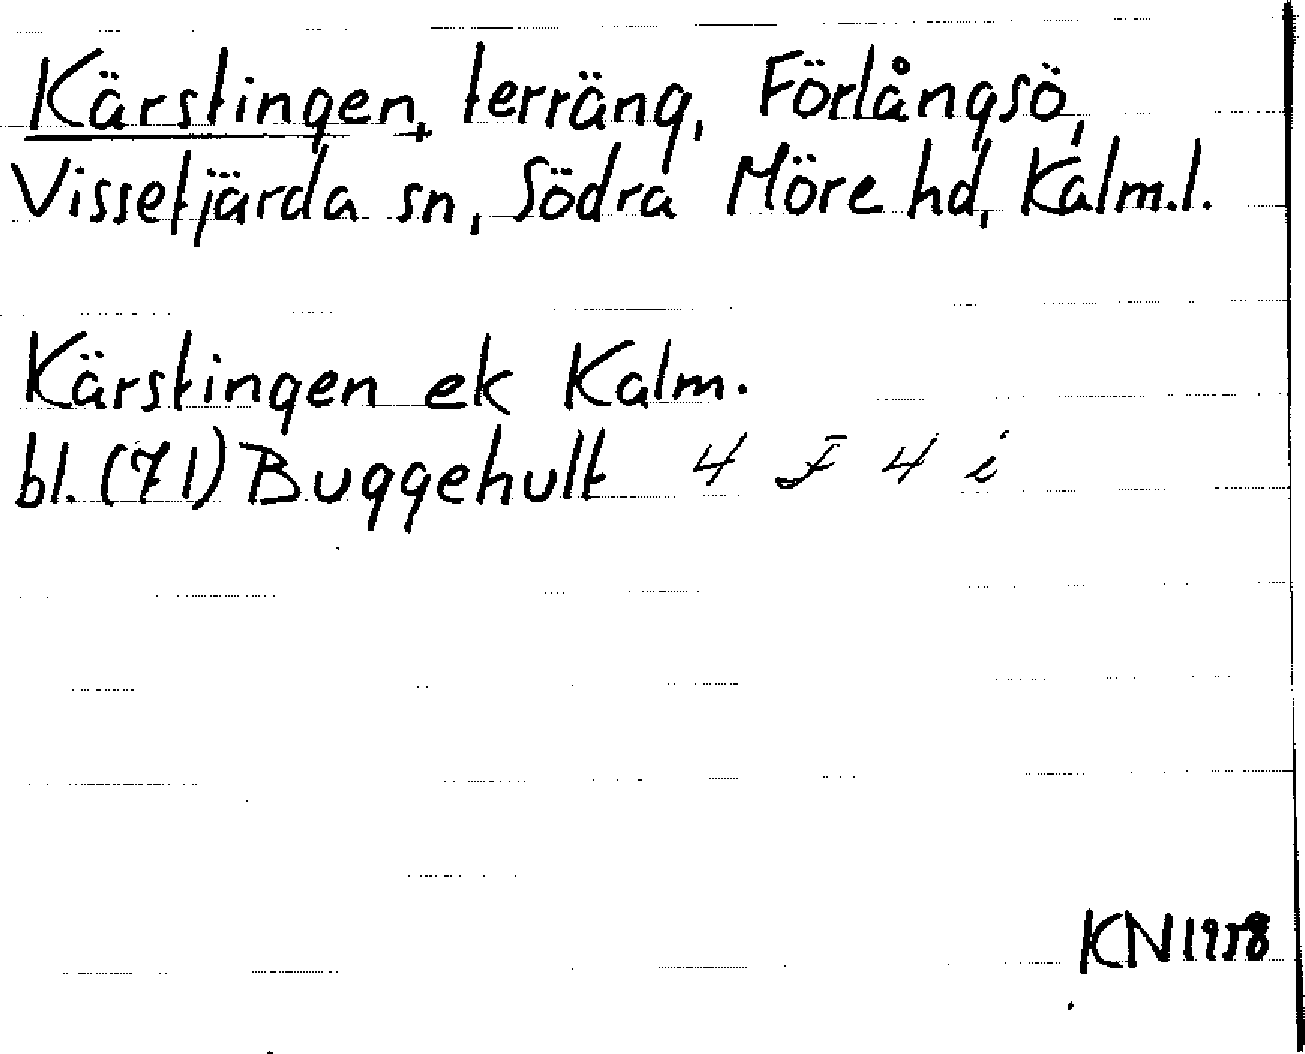 Kärstingen, terräng, Förlångsö,
Vissefjärda sn, Södra Möre hd, Kalm.l.
Kärstingen ek Kalm.
bl. (71) Buggehult 4 F 4 i
KN 1958